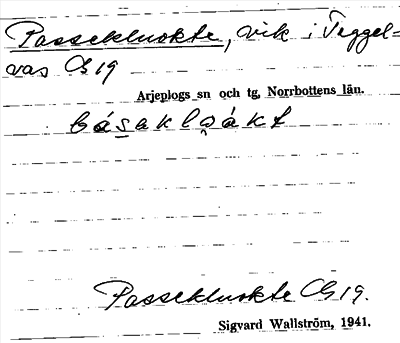 Passekluokte, vik i Teggel=
vas C19
Arjeplogs sn och tg, Norrbottens län.
básaklǫákt
Passekluokte C19.
Sigvard Wallström, 1941.